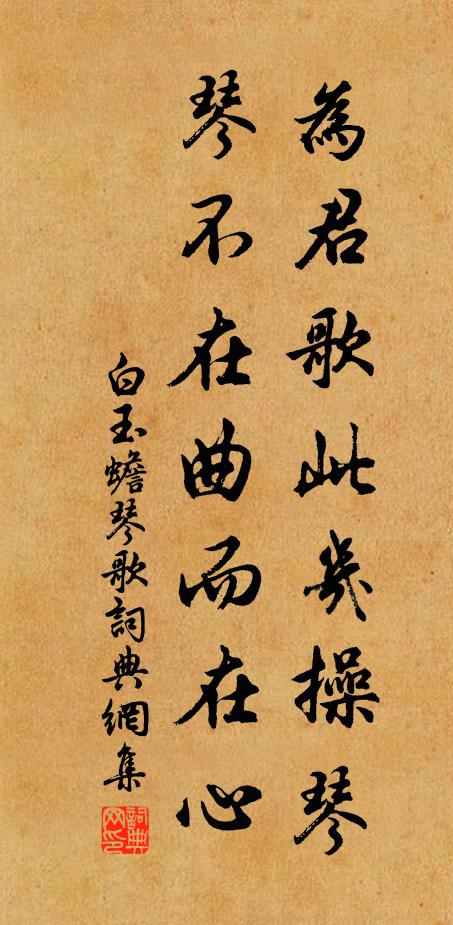 為君歌此幾操琴
琴不在曲而在心
白玉蟾琴歌詞典網集
詞典网印